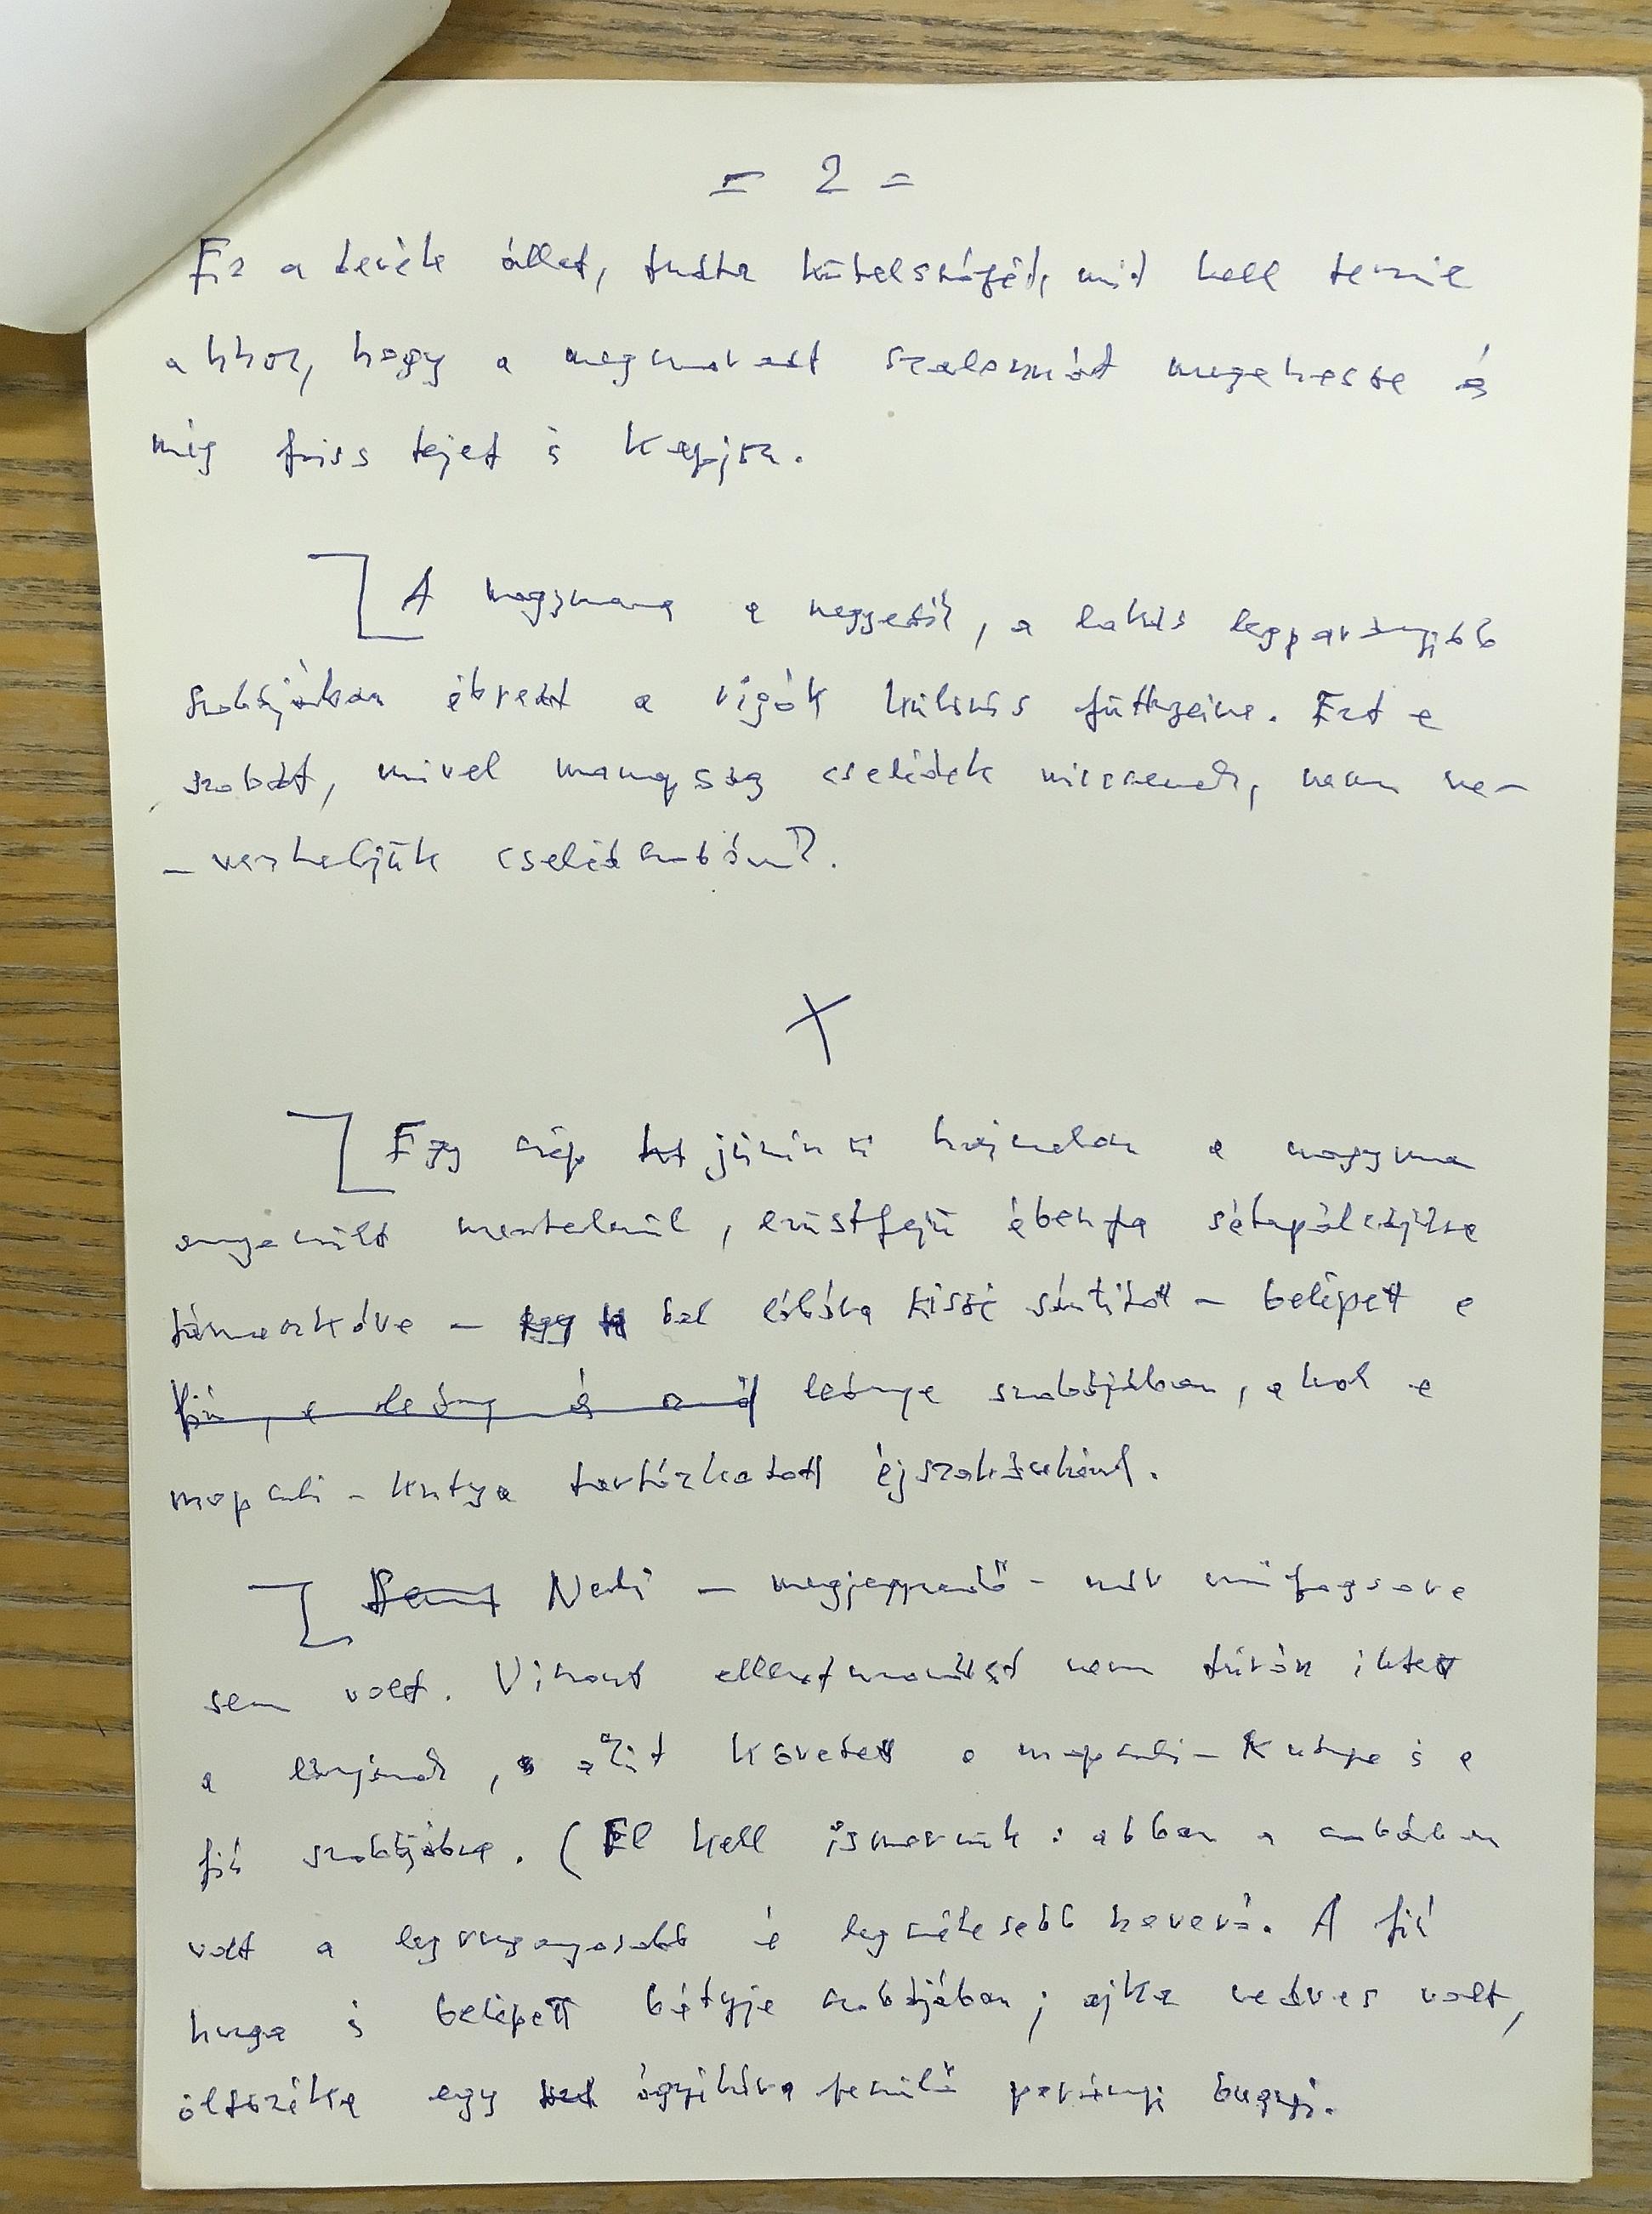 = 2 =
Ez a derék állat, tudta kötelességét, mit kell tennie
ahhoz, hogy a megmaradt szalonnát megehesse és
még friss tejet is kapjon.
A nagymama a negyedik, a lakás legparányibb
szobájában ébredt a rigók különös füttyeire. Ezt a
szobát, mivel manapság cselédek nincsenek, nem ne-
-vezhetjük cselédszobának.
X
Egy szép júniusi hajnalon a nagymama
nesztelenül, ezüstfejű ébenfa sétapálcájára
támaszkodva – bal lábára kissé sántított – belépett a
leánya szobájában, ahol a
mopszli-kutya tartózkodott éjszakánként.
Neki – megjegyzendő – már fogsora
sem volt. Viszont ellentmondást nem tűrőn
a lányának, s őt követte a mopszli-kutya is a
fiú szobájába. (El kell ismernünk: abban a szobában
volt a legruganyosabb és legszélesebb heverő. A fiú
huga is belépett bátyja szobájában; ajka nedves volt,
öltözéke egy ágyékára feszülő parányi bugyi.